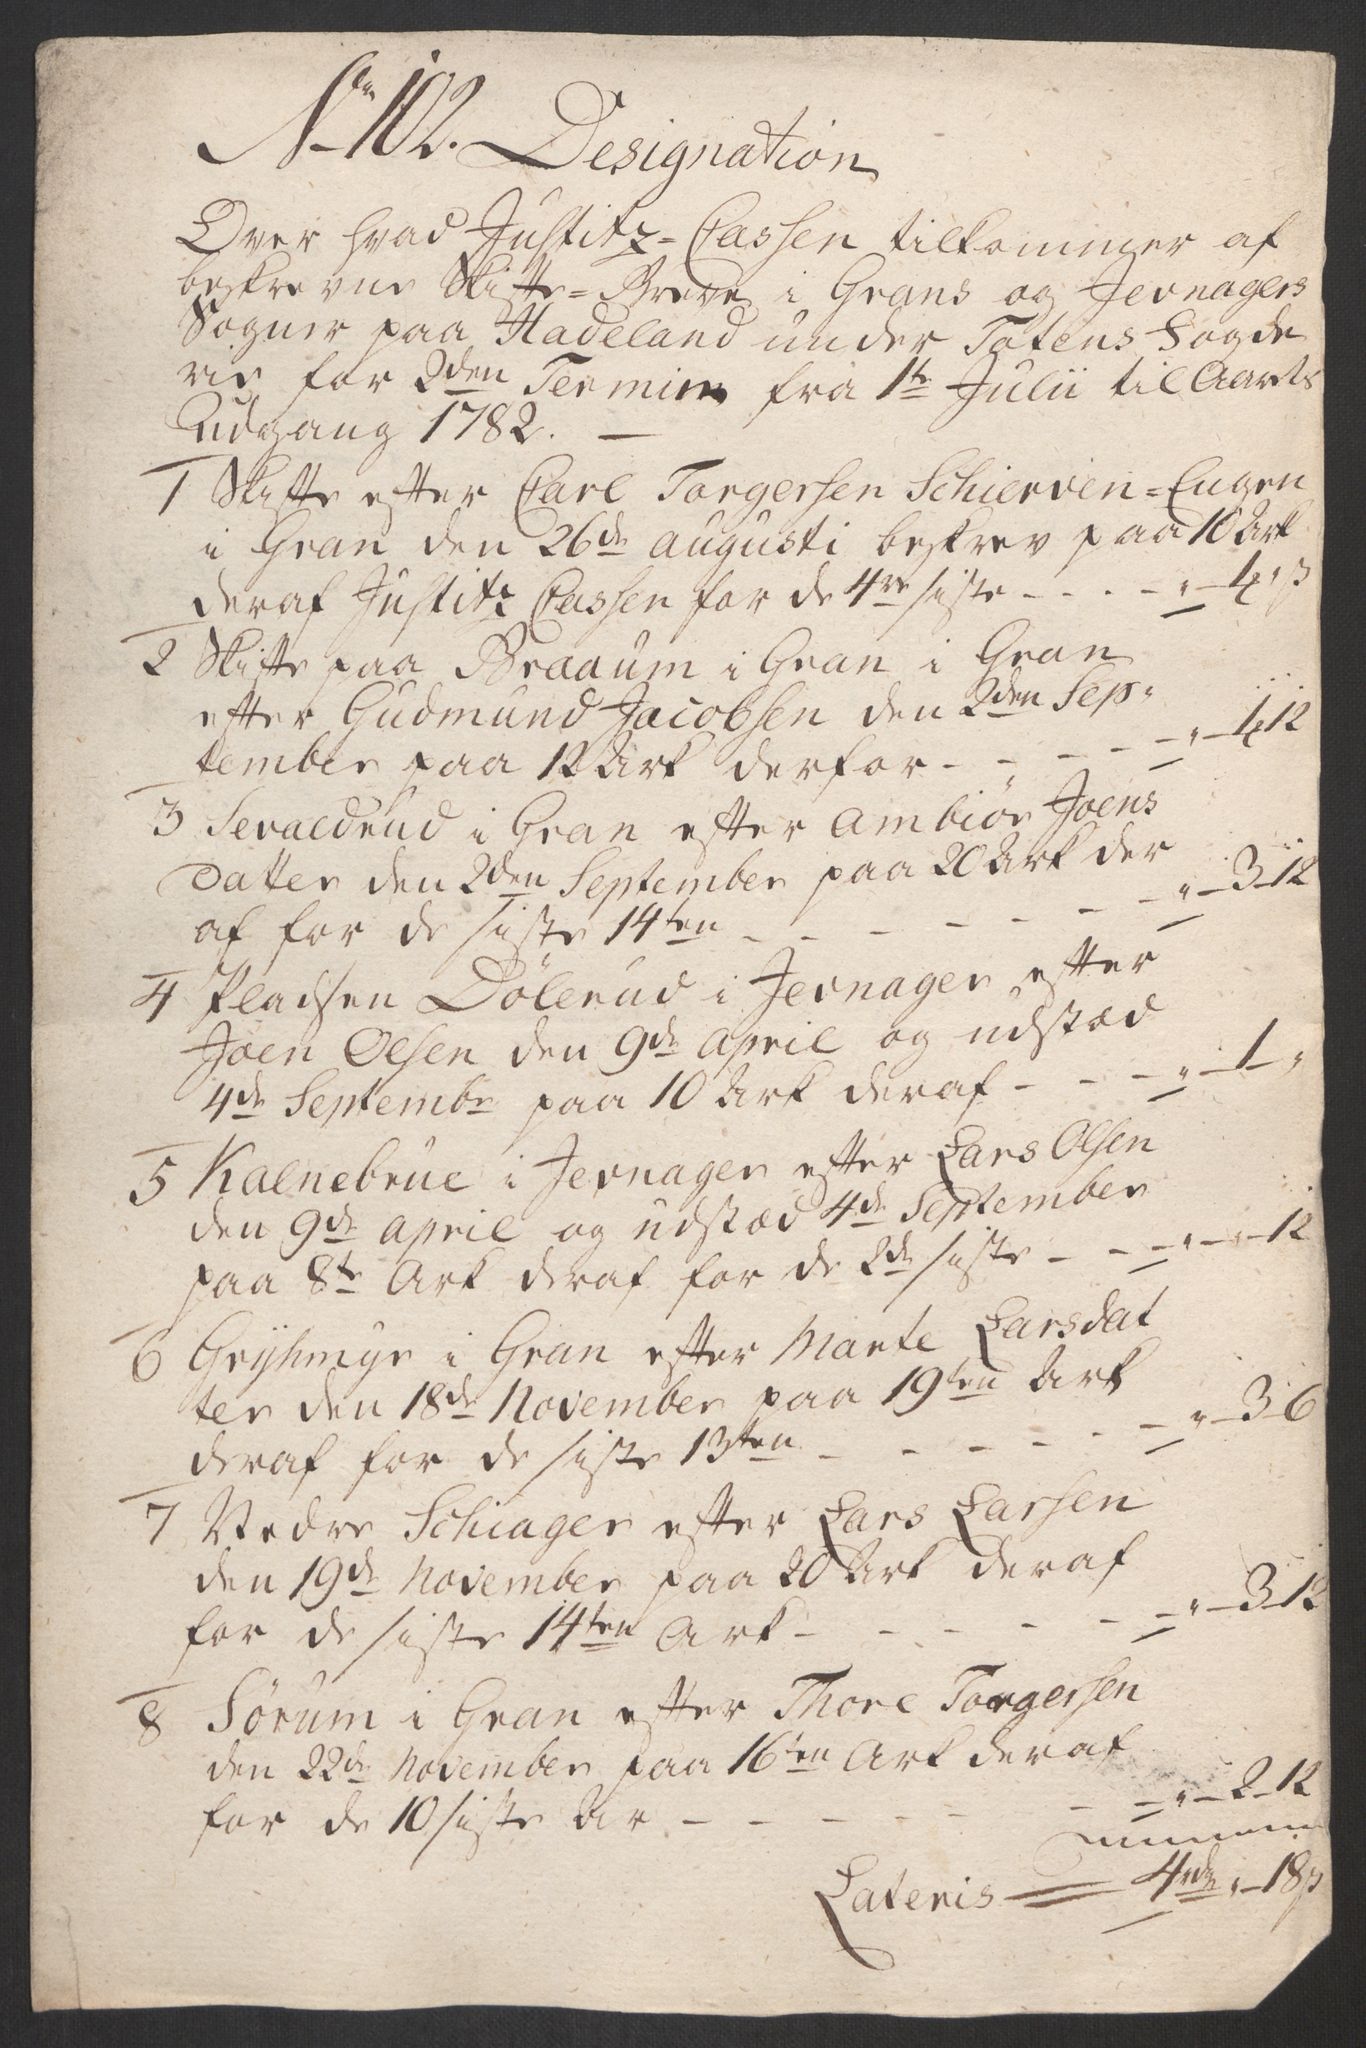 No 102. Designation
Over hvad Justitz-Cassen tilkommer af
beskrevne Skifte-Breve i Grans og Jevnagers
Sogner paa Hadeland under Totens Fogde
rie for 2den Termin fra 1te Julii til Aarets
Udgang 1782. —
1 Skifte efter Carl Torgersen Schierven-Eugen
i Gran den 26de augusti beskrev paa 10 Ark
deraf Justitz Cassen for de 4re siste - - - - " — 1 " ß
2 Skifte paa Braaum i Gran i Gran
efter Gudmund Jacobsen den 2den Sep-
tember paa 12 Ark derfor - - - - - " — 1 12
3 Sevaldrud i Gran efter Ambiør Joens
Datter den 2den September paa 20 Ark der
af for de siste 14ten - - - - - - " — 3 - 12
4 Pladsen Dølerud i Jevnager efter
Joen Olsen den 9de April og udstæd
4de Septembr paa 10 Ark deraf - - - - " — 1 — "
5 Kalnebrue i Jevnager efter Lars Olsen
den 9de April og udstæd 4de September
paa 8te Ark deraf for de 2de siste - - - " — " — 12
6 Gryhmyr i Gran efter Marte Larsdat
ter den 18de November paa 19ten Ark
deraf for de siste 13ten - - - - - - " — 3 - 6
7 Nedre Schiager efter Lars Larsen
den 19de November paa 20 Ark deraf
for de siste 14ten Ark - - - - - - " — 3 - 12
8 Sørum i Gran efter Thore Torgersen
den 22de November paa 16ten Ark deraf
for de 10 siste Ar - - - - - - - " — 2 - 12
Lateris — 4rdr " — 18 ß